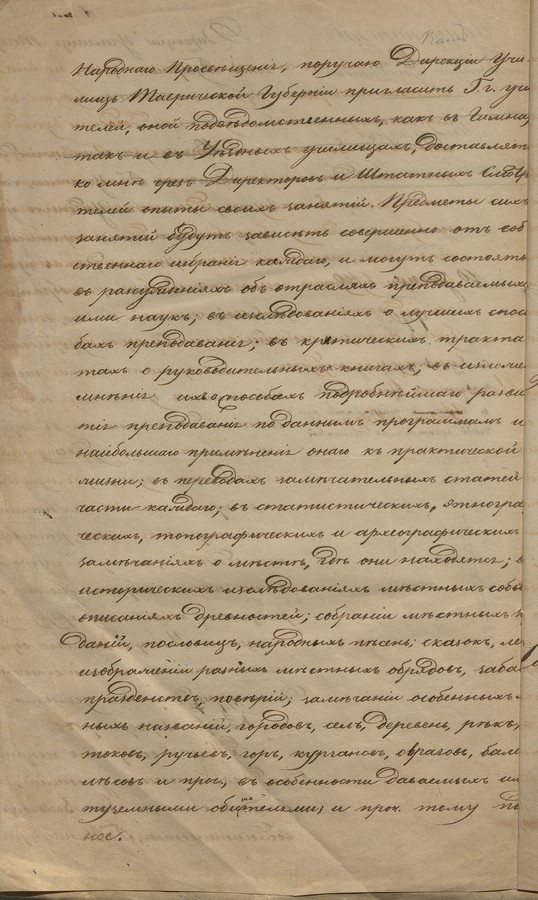 Народнаго Просвѣщенія, поручаю Дирекціи Учи-
лищъ Таврической Губерніи пригласить Г.г. учи
телей, оной подвѣдомственныхъ, какъ въ Гимна,
такъ и въ Уѣздныхъ училищахъ, доставлять
ко мнѣ чрезъ Директоровъ и Штатныхъ Смотри
телей опыты своихъ занятій. Предметы сихъ
занятій будутъ зависѣть совершенно отъ соб
ственнаго избранія каждаго, и могутъ состоять
въ разсужденіяхъ объ отрасляхъ преподаваемыхъ
ими наукъ; въ изслѣдованіяхъ о лучшихъ спосо
бахъ преподаванія; въ критическихъ тракта
тахъ о руководительныхъ книгахъ; въ изложе
мнѣній ихъ о способахъ подробнѣйшаго разви
тія преподаванія по даннымъ программамъ и
наибольшаго примѣненія онаго къ практической
жизни; въ переводахъ замѣчательныхъ статей
части каждаго; въ статистическихъ, этногра
ческихъ, топографическихъ и археографическихъ
замѣчаніяхъ о мѣстѣ, гдѣ они находятся; в
историческихъ изслѣдованіяхъ мѣстныхъ собы
описаніяхъ древностей; собраніи мѣстныхъ п
даній, пословицъ, народныхъ пѣсень; сказокъ, ле
изображеній разныхъ мѣстныхъ обрядовъ, заба
празденствъ, повѣрій; замѣчаніи особенныхъ
ныхъ названій, городовъ, селъ, деревень, рѣкъ,
токовъ, ручьевъ, горъ, кургановъ, овраговъ, бал
лѣсовъ и проч., въ особенности даваемыхъ им
туземными обитателями; и проч. тому по
ное.